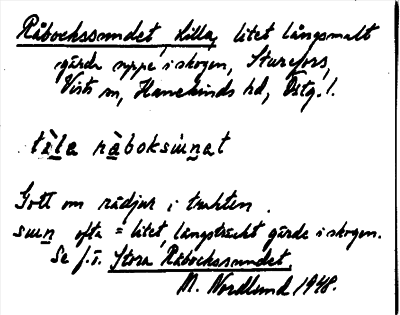 Råbockssundet, Lilla, litet långsmalt
gärde uppe i skogen, Sturefors,
Vists sn, Hanekinds hd, Östg.l.
lìla ràboksúnat
Gott om rådjur i trakten.
sun ofta = litet, långsträckt gärde i skogen.
Se f.ö. Stora Råbockssundet.
M. Nordlund 1948.